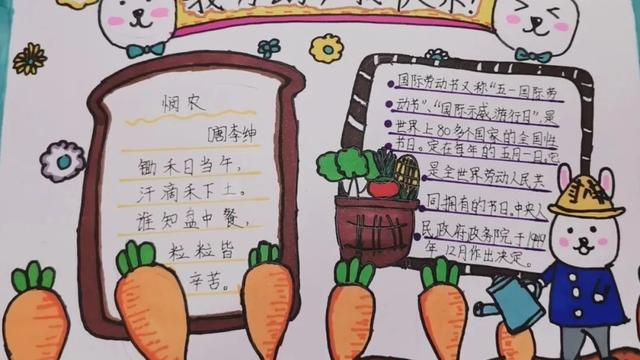 悯农
[唐李绅
锄禾日当午,
汗滴禾下土。
谁知盘中餐,
粒粒皆
辛苦。
国际劳动节又称“五一国际劳
动节”、“国际示威游行日”,是
世界上80多个国家的全国性
节日。定在每年的五月一日。它
是全世界劳动人民共
同拥有的节日。中央人
民政府政务院于1949
年12月作出决定。